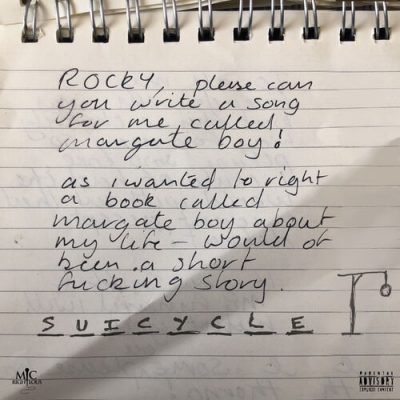 ROCKY, please can
you write a song
for me called
margate boy!
as i wanted to right
a book called
margate boy about
my life - would of
been a short
fucking story.
S U I C Y C L E
MIC
RIGHTEOUS
PARENTAL
ADVISORY
EXPLICIT CONTENT